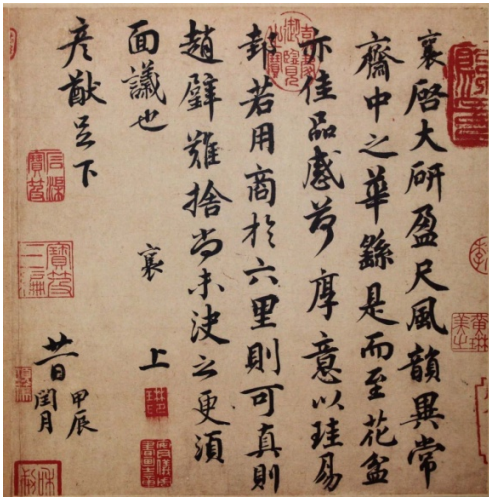 襄啓大研盈尺風韻異常
齋中之華繇是而至花盆
亦佳品感荷厚意以珪易
邽若用商於六里則可真則
趙璧難捨尚未決之更須
面議也
襄上
彥猷足下
廿一日甲辰閏月
黃琳美之